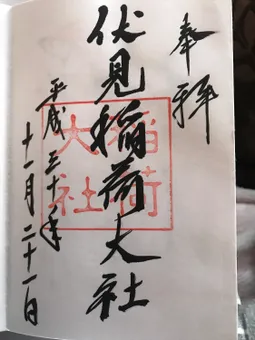 奉拝
伏見稲荷大社
稲荷
大社
平成三十年
十一月二十一日